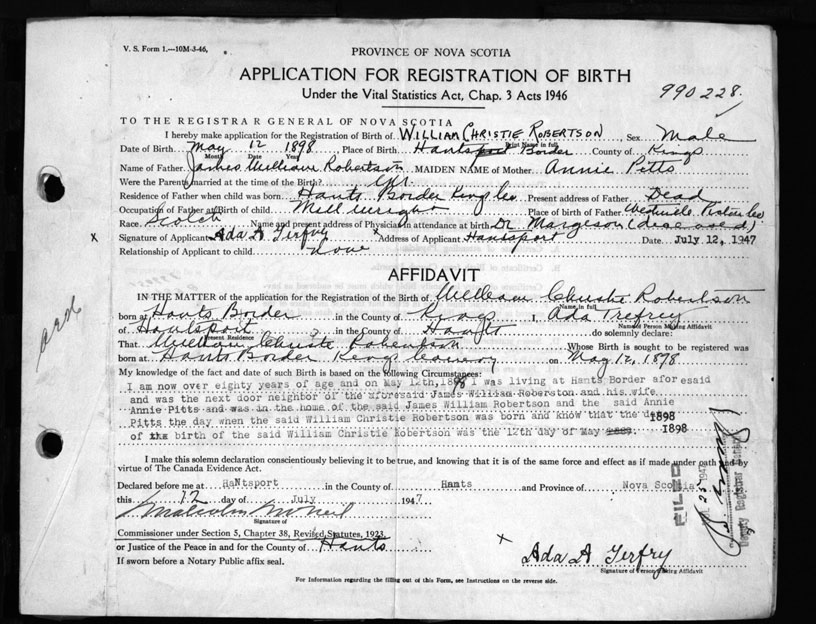 V. S. Form 1.—10M-3-46,
PROVINCE OF NOVA SCOTIA
APPLICATION FOR REGISTRATION OF BIRTH
Under the Vital Statistics Act, Chap. 3 Acts 1946
990228.
TO THE REGISTRAR GENERAL OF NOVA SCOTIA
I hereby make application for the Registration of Birth of WILLIAM CHRISTIE ROBERTSON, Sex Male
Print Name in full
Date of Birth May 12 1898 Place of Birth Hantsport Border County of Kings
Month Date Year
Name of Father James William Robertson MAIDEN NAME of Mother Annie Pitts
Were the Parents married at the time of the Birth? Yes
Residence of Father when child was born Hants Border Kings Co Present address of Father Dead
Occupation of Father at Birth of child Mill wright Place of birth of Father
Race Scotch Name and present address of Physician in attendance at birth Dr Margeson (deceased)
x Signature of Applicant Ada A Terfry x Address of Applicant Hantsport Date July 12, 1947
Relationship of Applicant to child None
AFFIDAVIT
IN THE MATTER of the application for the Registration of the Birth of William Christie Robertson
Name in full
born at Hants Border in the County of Kings I, Ada Trefrey
Name of Person Making Affidavit
of Hantsport in the County of Hants do solemnly declare:
Present Residence
That William Christie Robertson Whose Birth is sought to be registered was
born at Hants Border Kings County on May 12, 1898
My knowledge of the fact and date of such Birth is based on the following Circumstances:
I am now over eighty years of age and on May 12th, 1898 I was living at Hants Border aforesaid
and was the next door neighbor of the aforesaid James William Roberston and his wife
Annie Pitts and was in the home of the said James William Robertson and the said Annie
Pitts the day when the said William Christie Robertson was born and know that the date
1898
of the birth of the said William Christie Robertson was the 12th day of May 1898
I make this solemn declaration conscientiously believing it to be true, and knowing that it is of the same force and effect as if made under oath and by
virtue of The Canada Evidence Act.
Declared before me at HaNtsport in the County of Hants and Province of Nova Scotia
this 12 day of July 1947
Malcolm McNeil
Signature of
Commissioner under Section 5, Chapter 38, Revised Statutes, 1923,
or Justice of the Peace in and for the County of Hants
If sworn before a Notary Public affix seal.
x Ada A Terfry
Signature of Person Making Affidavit
For Information regarding the filling out of this Form, see Instructions on the reverse side.
FILED
Deputy Registrar General